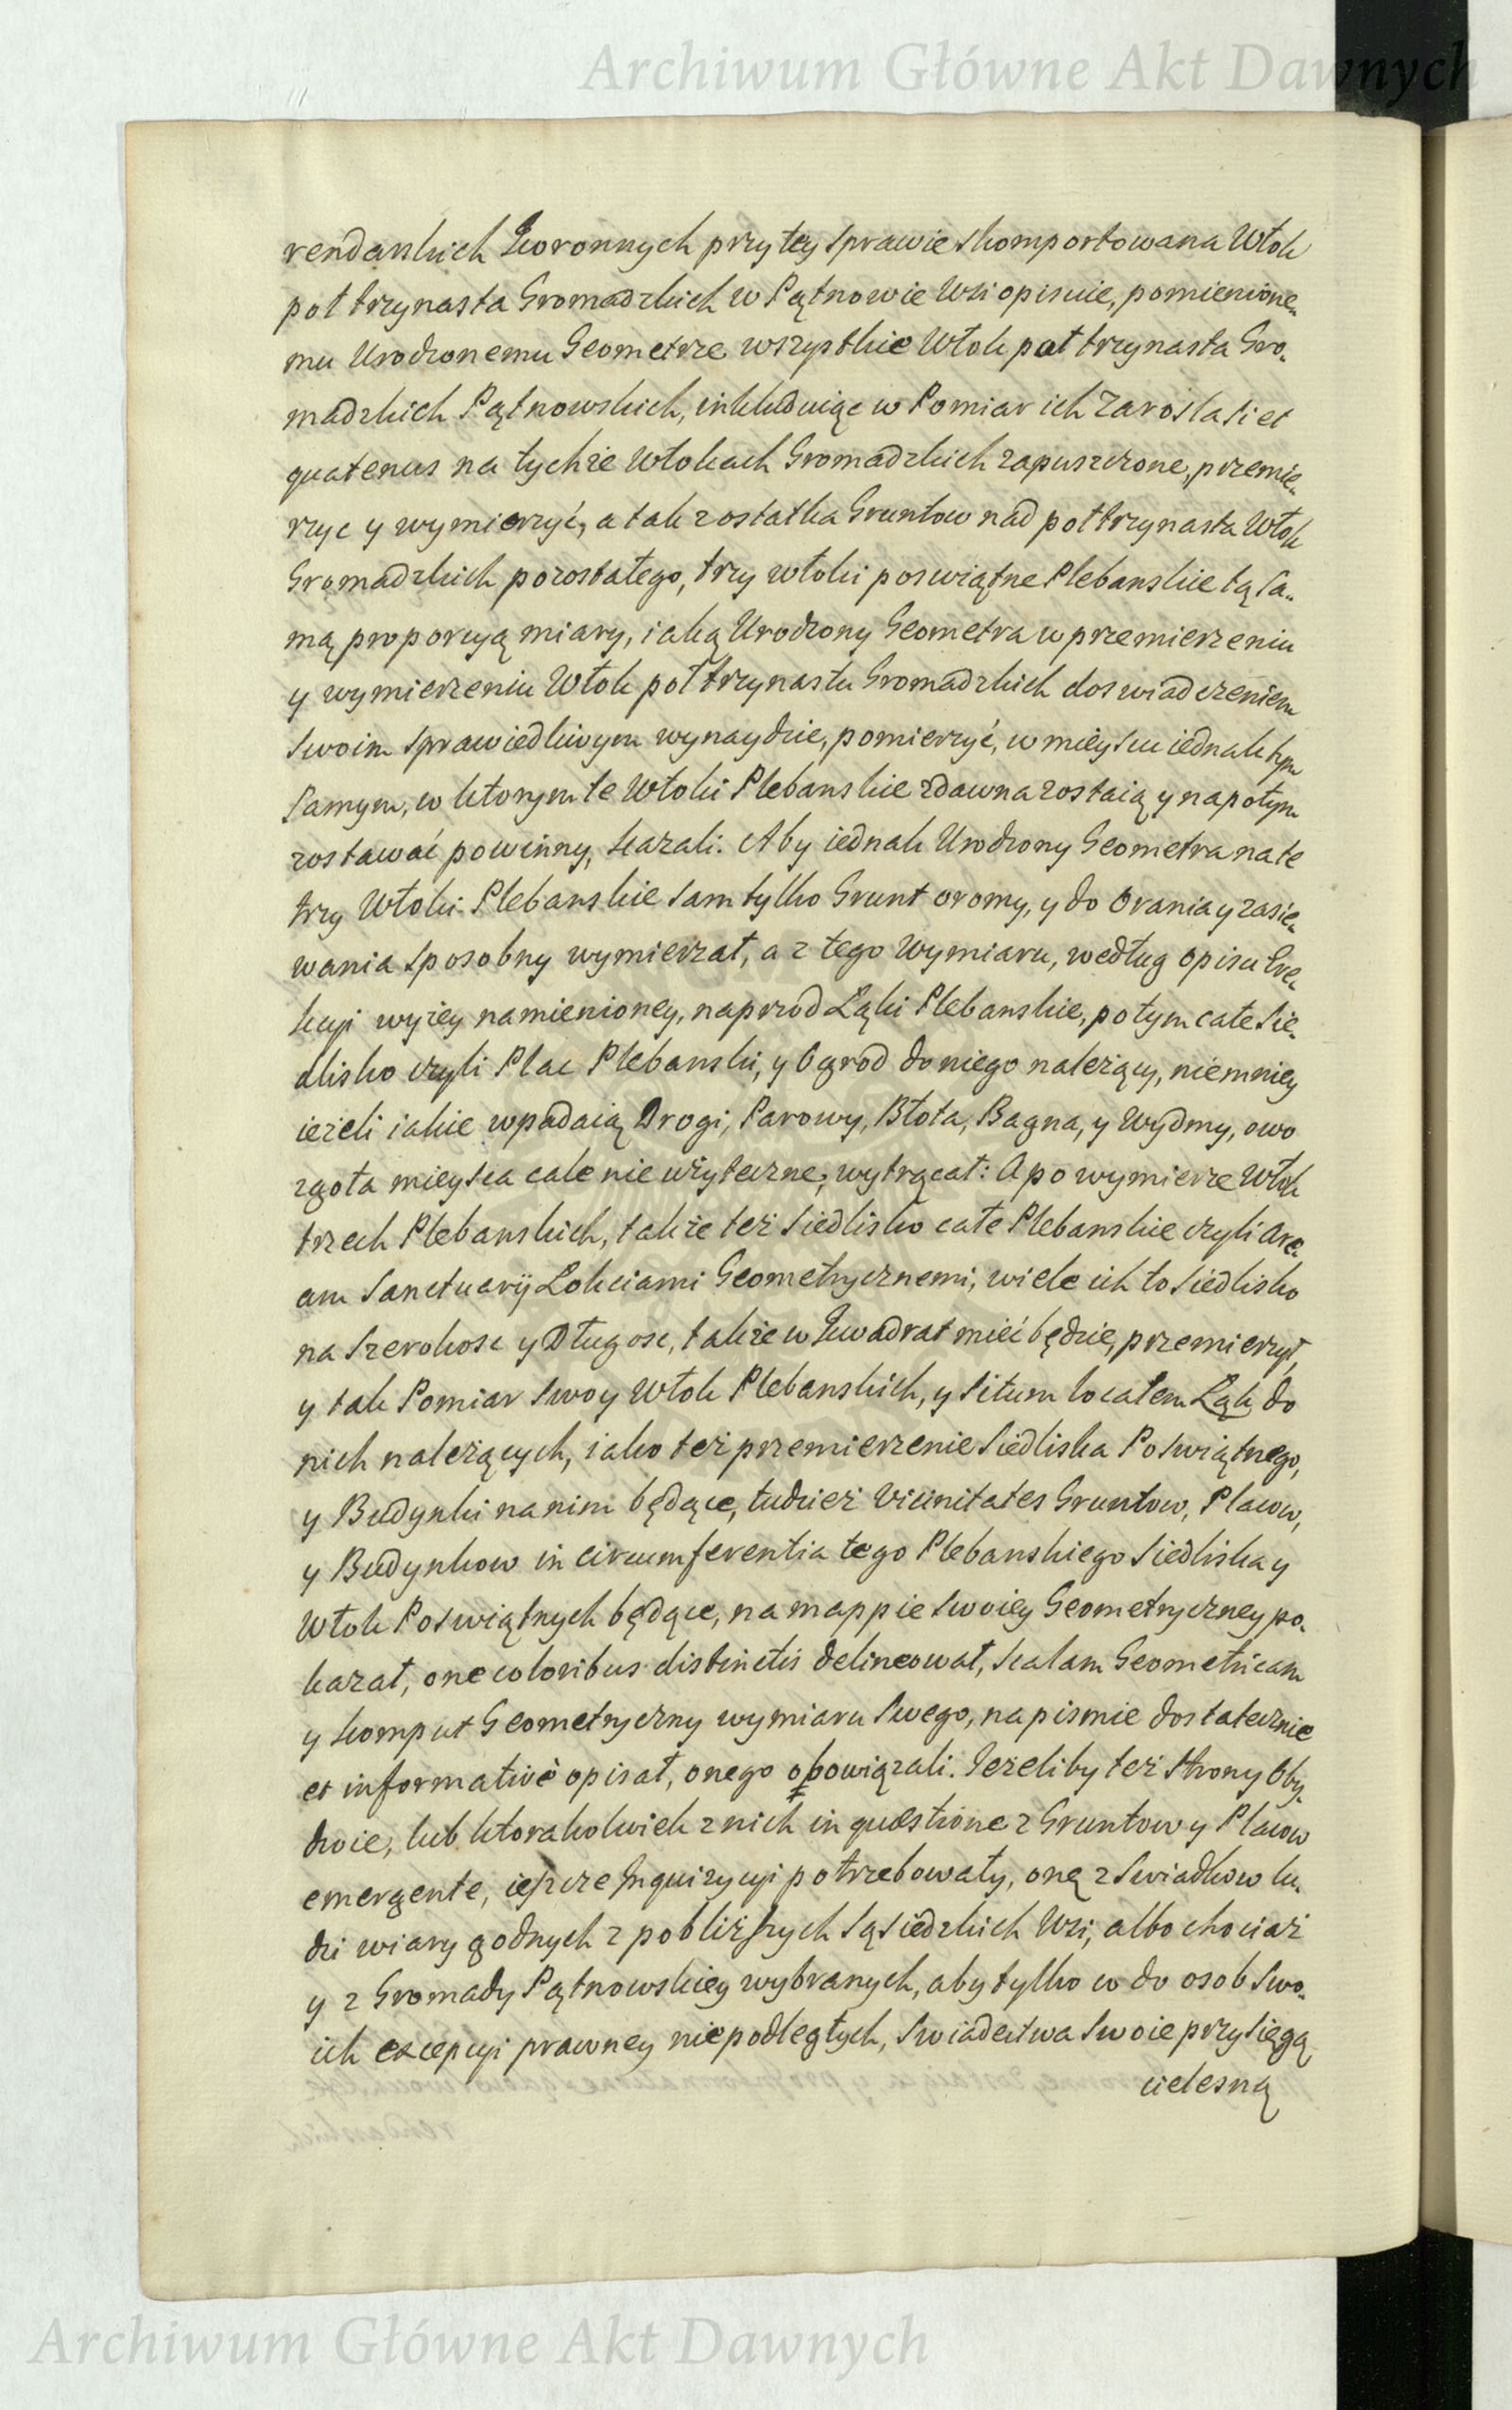 Archiwum Główne Akt Dawnych
rendarskich Koronnych przy tey sprawie skomportowana Włok
pół trzynasta Gromadzkich w Pątnowie Wsi opisuie, pomienione„
mu Urodzonemu Geometrze wszystkie Włok puł trzynasta Gro„
madzkich Pątnowskich, inkluduiąc w Pomiar ich Zarosla si et
quatenus na tychże Włokach Gromadzkich zapuszczone, przemie„
rzyc y wymierzyć, a tak z ostatka Gruntow nad pół trzynasta Włok
Gromadzkich pozostałego, trzy włoki poswiątne Plebanskie tą sa„
mą proporcyą miary, iaką Urodzony Geometra w przemierzeniu
y wymierzeniu Włok pół trzynastu Gromadzkich doswiadczeniem
swoim sprawiedliwym wynaydzie, pomierzyć, w mieyscu iednak tym
samym, w ktorym te Włoki Plebanskie zdawna zostaią y napotym
zostawać powinny, kazali. Aby iednak Urodzony Geometra na te
trzy Włoki Plebanskie sam tylko Grunt oromy, y do Orania y zasie„
wania sposobny wymierzał, a z tego Wymiaru, według opisu Ere„
kcyi wyżey namienioney, naprzod Łąki Plebanskie, potym całe Sie„
dlisko czyli Plac Plebanski, y Ogrod do niego należący, niemniey
ieżeli iakie wpadaią Drogi, Parowy, Błota, Bagna, y Wydmy, owo
zgoła mieysca cale nie użyteczne, wytrącał: A po wymierze Włok
trzech Plebanskich, takze też Siedlisko całe Plebanskie czyli Are„
am Sanctuarij Łokciami Geometrycznemi, wiele ich to Siedlisko
na Szerokosc y Długosc, także w Kwadrat mieć będzie, przemierzył,
y tak Pomiar swoy Włok Plebanskich, y situm localem Łąk do
nich należących, iako też przemierzenie Siedliska Poswiątnego,
y Budynki na nim będące, tudzież Vicinitates Gruntow, Placow,
y Budynkow in circumferentia tego Plebanskiego Siedliska y
Włok Poswiątnych będące, na mappie swoiey Geometryczney po„
kazał, one coloribus distinctis delineował, scalam Geometricam
y komput Geometryczny wymiaru swego, na pismie dostatecznie
et informativè opisał, onego obowiązali. Ieżeliby też Strony Oby„
dwie, lub ktorakolwiek z nich in quæstione z Gruntow y Placow
emergente, ieszcze Inquizycyi potrzebowały, onę z Swiadkow lu„
dzi wiary godnych z pobliższych Sąsiedzkich Wsi, albo chociaż
y z Gromady Pątnowskiey wybranych, aby tylko co do osob swo„
ich excepcyi prawney niepodległych, Swiadectwa swoie przysięgą
cielesną
Archiwum Główne Akt Dawnych